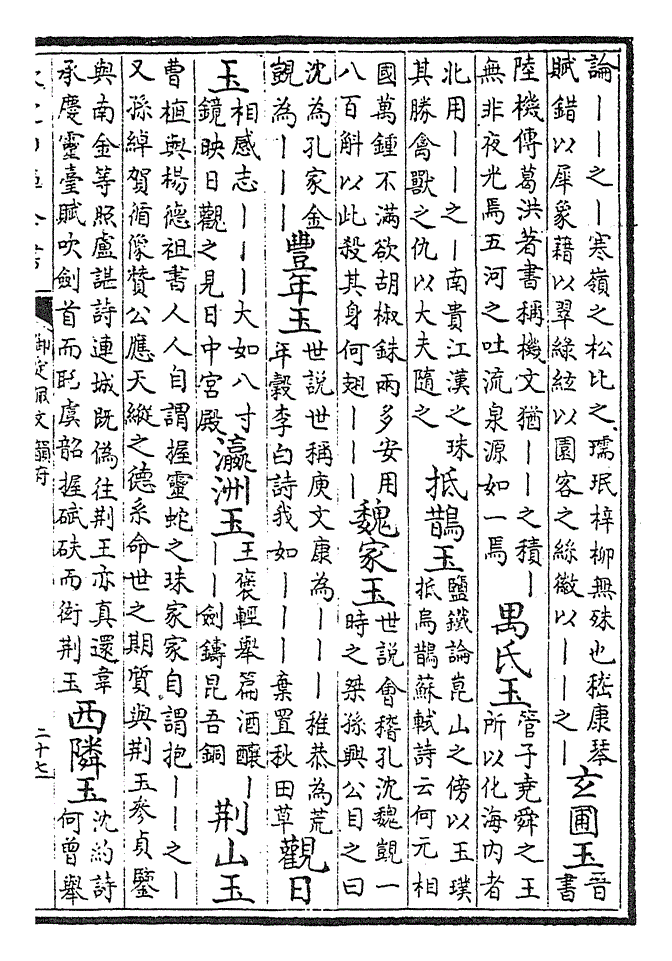 論——之—寒嶺之松比之瑌珉梓柳無殊也嵇康琴
賦錯以犀象藉以翠綠絃以園客之絲徽以——之—
玄圃玉
晉
書
陸機傳葛洪著書稱機文猶——之積—
無非夜光焉五河之吐流泉源如一焉
禺氏玉
管子堯舜之王
所以化海內者
北用——之—南貴江漢之珠
其勝禽獸之仇以大夫隨之
抵鵲玉
鹽鐵論崑山之傍以玉璞
抵烏鵲蘇軾詩云何元相
國萬鍾不滿欲胡椒銖兩多安用
八百斛以此殺其身何翅———
魏家玉
世説會稽孔沈魏顗一
時之桀孫興公目之曰
沈為孔家金
顗為———
豐年玉
世説世稱庾文康為———稚恭為荒
年穀李白詩我如———棄置秋田草
觀日
玉
相感志———大如八寸
鏡映日觀之見日中宮殿
瀛洲玉
王褒輕舉篇酒釀—
——劍鑄昆吾銅
荆山玉
曹植與楊德祖書人人自謂握靈蛇之珠家家自謂抱——之—
又孫綽賀循像贊公應天縱之德系命世之期質與荆玉參貞鑒
與南金等照盧諶詩連城既偽往荆王亦真還韋
承慶靈臺賦吹劍首而聒虞韶握碔砆而衒荆玉
西隣玉
沈約詩
何曾舉
御定佩文韻府
二十七